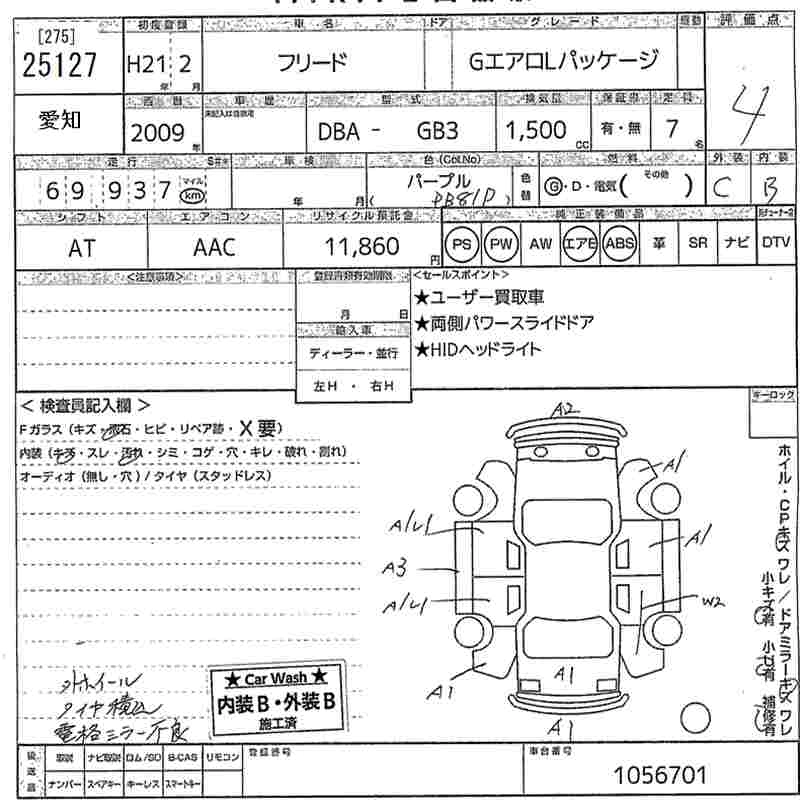 [275]
25127
愛知
初度登録 車名 ドア グレード 評価点
H21 2 フリード GエアロLパッケージ
年 月
4
西暦 車歴 型式 排気量 保証書 定員
未記入は自家用
2009 年 DBA - GB3 1,500 CC 有・無 7 名
走行 車検 色(Col.No) 燃料 外装 内装
69937 マイル km 年 月 パープル PB81P ( ) 色替 G・D・電気( その他 ) C B
シフト エアコン リサイクル預託金 純正装備品
AT AAC 11,860 円 PS PW AW エアB ABS 革 SR ナビ DTV
<注意事項> 登録書類有効期限 <セールスポイント>
月 日
★ユーザー買取車
★両側パワースライドドア
★HIDヘッドライト
輸入車
ディーラー・並行
左H ・ 右H
キーロック
< 検査員記入欄 >
Fガラス (キズ・飛石・ヒビ・リペア跡・X要)
内装 (キズ・スレ・汚れ・シミ・コゲ・穴・キレ・破れ・割れ)
オーディオ (無し・穴) / タイヤ (スタッドレス)
A2
A1
A1
A3
A1
W2
A1
A1
A1
ホイル・CPキズ ワレ / ドアミラーキズ ワレ
小キズ有 小凹有 補修有
外ホイール
タイヤ積込
電格ミラー不良
★ Car Wash ★
内装B・外装B
施工済
後送品 取説 ナビ取説 ロム/SD B-CAS リモコン
ナンバー スペアキー キーレス スマートキー
登録番号
車台番号
1056701